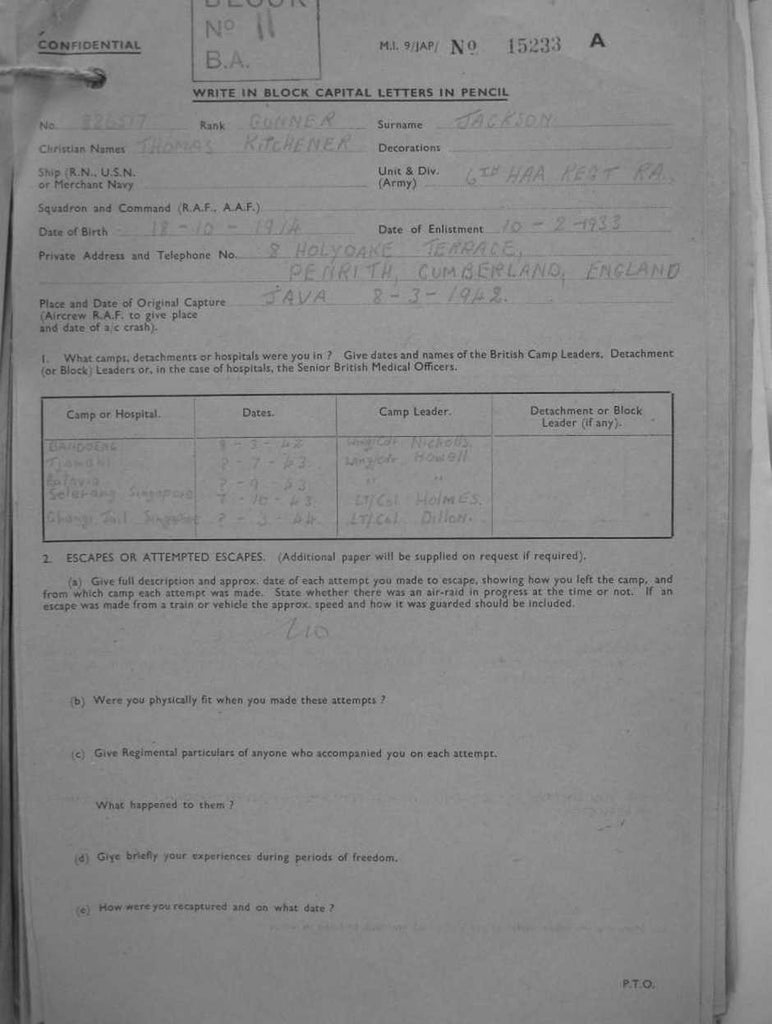 BLOCK
Nº 11
B.A.
CONFIDENTIAL
M.I. 9/JAP/ Nº 15233 A
WRITE IN BLOCK CAPITAL LETTERS IN PENCIL
No. Rank GUNNER Surname JACKSON
Christian Names THOMAS KITCHENER Decorations
Ship (R.N., U.S.N. or Merchant Navy
Unit & Div. (Army) 6TH HAA REGT RA.
Squadron and Command (R.A.F., A.A.F.)
Date of Birth 18 - 10 - 1914 Date of Enlistment 10 - 2 - 1933
Private Address and Telephone No. 8 HOLYOAKE TERRACE,
PENRITH, CUMBERLAND, ENGLAND
Place and Date of Original Capture JAVA 8 - 3 - 1942.
(Aircrew R.A.F. to give place
and date of a/c crash).
1. What camps, detachments or hospitals were you in ? Give dates and names of the British Camp Leaders, Detachment
(or Block) Leaders or, in the case of hospitals, the Senior British Medical Officers.
Camp or Hospital. Dates. Camp Leader. Detachment or Block Leader (if any).
BANDOENG 8 - 3 - 42 Wing/Cdr Nicholls.
? - 7 - 43 Wing/Cdr Howell
Batavia ? - 9 - 43 " "
Selerang Singapore ? - 10 - 43 LT/Col HOLMES.
Changi Jail Singapore ? - 3 - 44 LT/Col Dillon.
2. ESCAPES OR ATTEMPTED ESCAPES. (Additional paper will be supplied on request if required).
(a) Give full description and approx. date of each attempt you made to escape, showing how you left the camp, and
from which camp each attempt was made. State whether there was an air-raid in progress at the time or not. If an
escape was made from a train or vehicle the approx. speed and how it was guarded should be included.
(b) Were you physically fit when you made these attempts ?
(c) Give Regimental particulars of anyone who accompanied you on each attempt.
What happened to them ?
(d) Give briefly your experiences during periods of freedom.
(e) How were you recaptured and on what date ?
P.T.O.